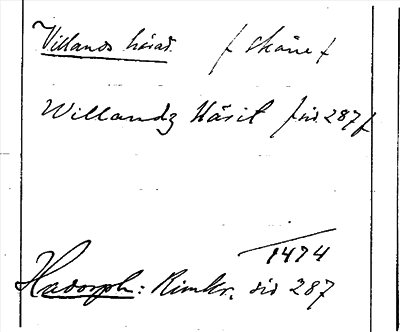 Villands härad. / Skåne /
Willandz Härit / sid. 287 /
1474
Hadorph: Rimkr. sid 287